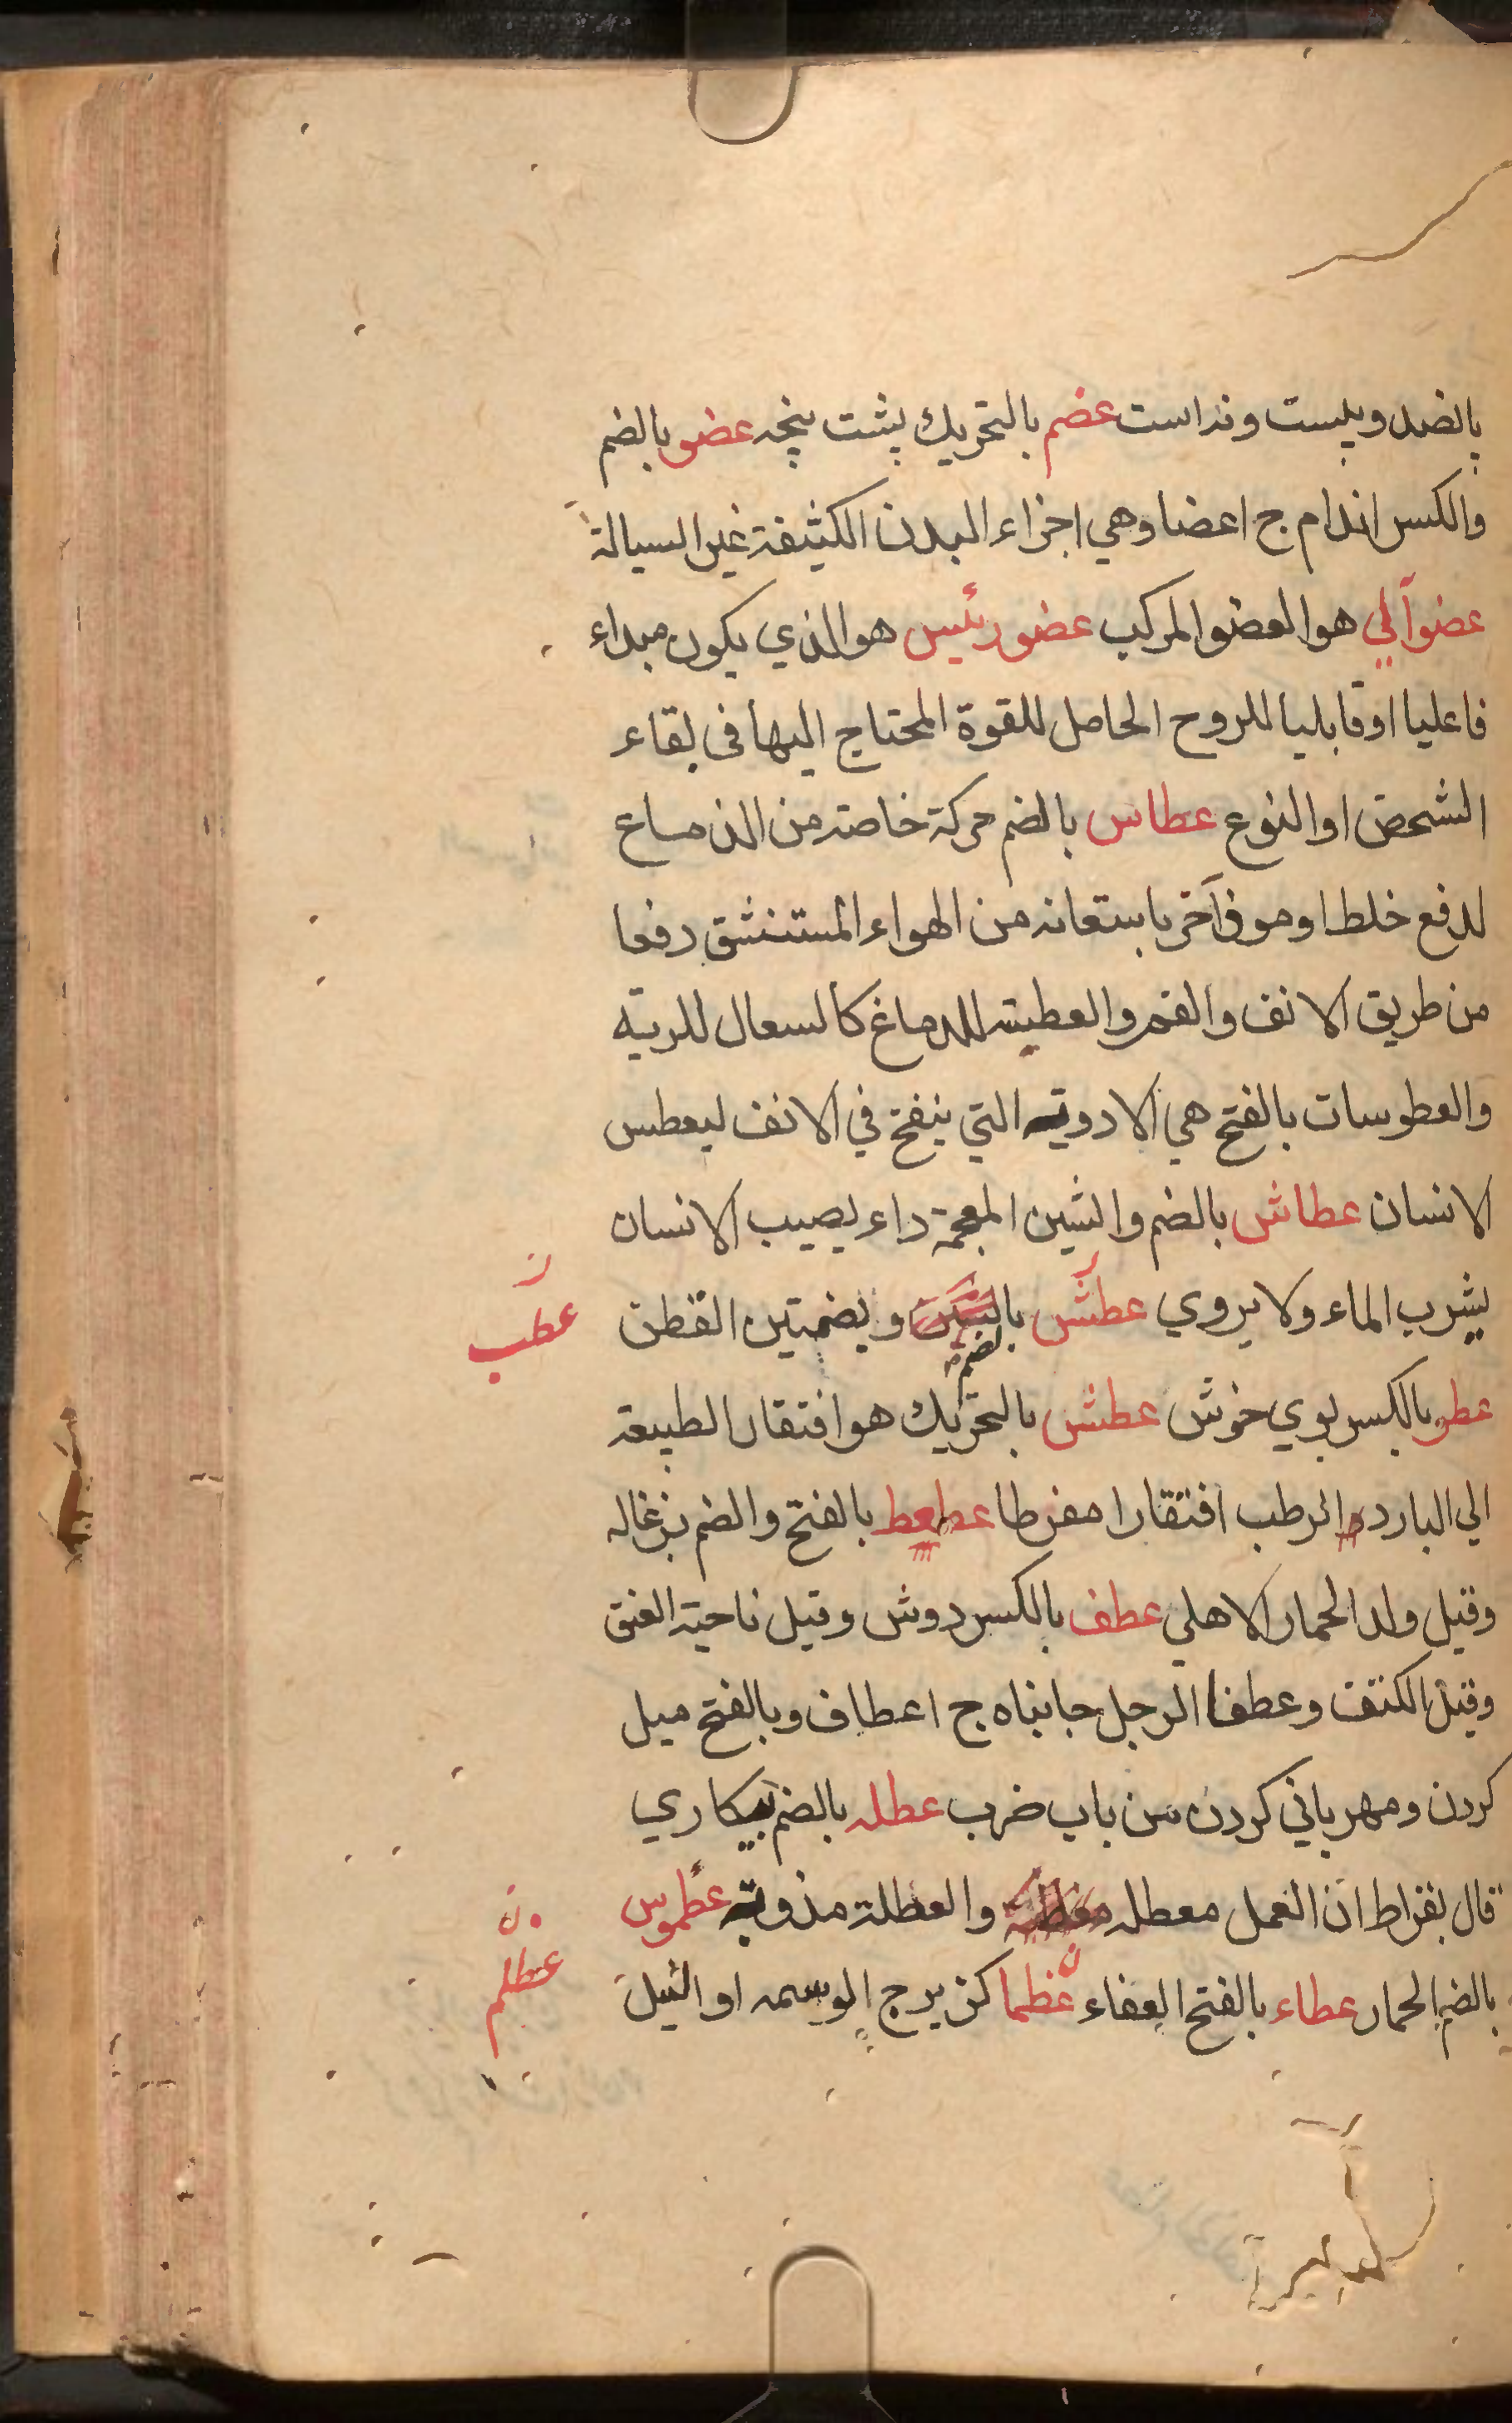 بالضد و بلست و نداست عضم بالتحريك پشت پنجه عضو بالضم
والكسر اندام ج اعضا وهي اجزاء البدن الكثيفة غير السيالة
عضو آلي هو العضو المركب عضو رئيس هو الذي يكون مبداء
فاعليا او قابليا للروح الحاصل للقوة المحتاج اليها فى بقاء
الشخص او النوع عطاس بالضم حركة خاصته من الدماع
لدفع خلط او موذ آخر باستعانه من الهواء المستنشق دفعا
من طريق الانف والفم والعطسه للدماغ كالسعال للريه
والعطوسات بالفتح هي الادويه التي ينفخ في الانف ليعطس
الانسان عطاش بالضم والشين المعجمة داء يصيب الانسان
يشرب الماء ولا يروي عطش بالضم وبضمتين القطن
عطب
عطر بالكسر بوي خوش عطش بالتحريك هو افتقار الطبيعة
الي البارد الرطب افتقارا مفرطا عطعط بالفتح والضم بزغاله
وقيل ولد الحمار الاهلي عطف بالكسر دوش وقيل ناحية العنق
وقيل الكتف وعطفا الرجل جانباه ج اعطاف وبالفتح ميل
كردن ومهرباني كردن من باب ضرب عطله بالضم بيكاري
قال بقراط ان العمل معطله والعطلة مذوبة عطموس
بالضم الحمار عطاء بالفتح العفاء عظما كزبرج الوسمه او النيل
عظلم